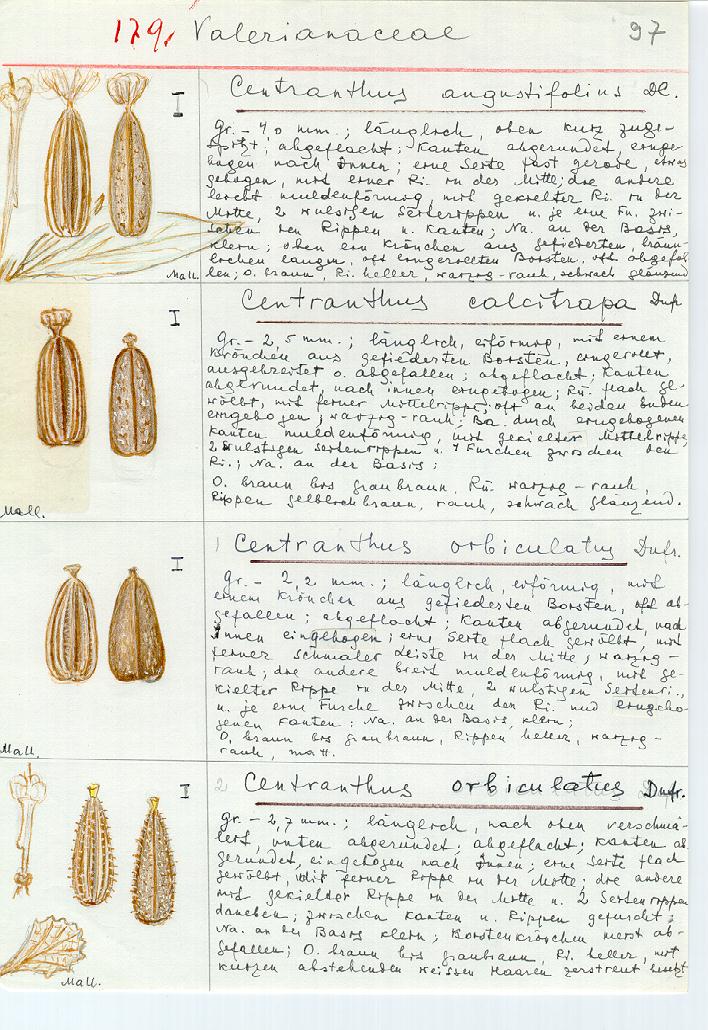 179. Valerianaceae 97
I
Centranthus angustifolius DC.
Gr. - 4,0 mm.; länglich, oben kurz zuge-
spitzt; abgeflacht; Kanten abgerundet, einge-
bogen nach Innen; eine Seite fast gerade, etwas
gebogen, mit einer Ri. in der Mitte; die andere
leicht muldenförmig, mit gekielter Ri. in der
Mitte, 2 wulstigen Seitenrippen u. je eine Fu. zwi-
schen den Rippen u. Kanten; Na. an der Basis,
klein; oben ein Krönchen aus gefiederten, bräun-
lichen langen, oft eingerollten Borsten, oft abgefal-
len; O. braun, Ri. heller, warzig-rauh, schwach glänzend
Mall.
I
Centranthus calcitrapa Dufr.
Gr. - 2,5 mm.; länglich, eiförmig, mit einem
Krönchen aus gefiederten Borsten, eingerollt,
ausgebreitet o. abgefallen; abgeflacht; Kanten
abgerundet, nach innen eingebogen; Rü. flach ge-
wölbt, mit feiner Mittelrippe; oft an beiden Enden
eingebogen; warzig-rauh; Ba. durch eingebogenen
Kanten muldenförmig, mit gekielter Mittelrippe,
2 wulstigen Seitenrippen u. 1 Furchen zwischen den
Ri.; Na. an der Basis;
O. braun bis graubraun, Rü. warzig-rauh,
Rippen gelblichbraun, rauh, schwach glänzend.
Mall.
I
1 Centranthus orbiculatus Dufr.
Gr. - 2,2 mm.; länglich, eiförmig, mit
einem Krönchen aus gefiederten Borsten, oft ab-
gefallen; abgeflacht; Kanten abgerundet, nach
Innen eingebogen; eine Seite flach gewölbt, mit
feiner schmaler Leiste in der Mitte, warzig-
rauh; die andere breit muldenförmig, mit ge-
kielter Rippe in der Mitte, 2 wulstigen Seitenri.,
u. je eine Furche zwischen den Ri. und eingebo-
genen Kanten; Na. an der Basis, klein;
O. braun bis graubraun, Rippen heller, warzig-
rauh, matt.
Mall.
I
2 Centranthus orbiculatus Dufr.
Gr. - 2,7 mm.; länglich, nach oben verschmä-
lert, unten abgerundet; abgeflacht; Kanten ab-
gerundet, eingebogen nach Innen; eine Seite flach
gewölbt, mit feiner Rippe in der Mitte; die andere
mit gekielter Rippe in der Mitte u. 2 Seitenrippen
daneben; zwischen Kanten u. Rippen gefurcht;
Na. an der Basis klein; Borstenkrönchen meist ab-
gefallen; O. braun bis graubraun, Ri. heller, mit
kurzen abstehenden weissen Haaren zerstreut besetzt
Mall.